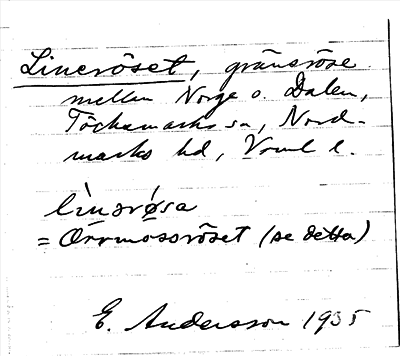 Lineröset, gränsröse
mellan Norge o. Dalen,
Töcksmarks sn, Nord-
marks hd, Vrml l.
lìnərø̀sa
= Örrmossröset (se detta)
E. Andersson 1935